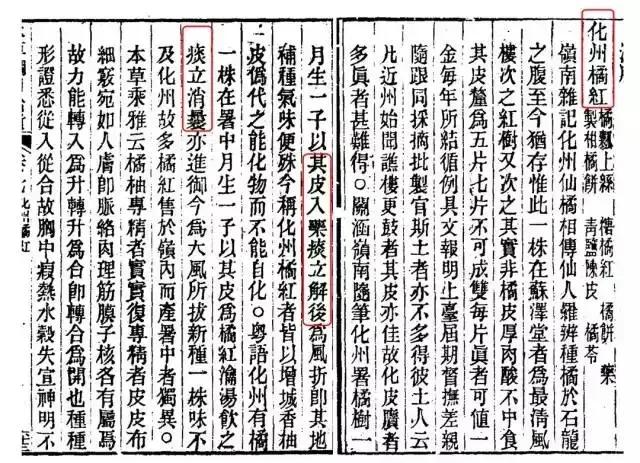 化州橘紅 橘瓤上絲 橘紅 橘餅 藥
製柑橘餅 青鹽陳皮 橘苓
嶺南雜記化州仙橘相傳仙人羅辨種橘於石龍
之腹至今猶存惟此一株在蘇澤堂者為最清風
樓次之紅樹又次之其實非橘皮厚肉酸不中食
其皮釐為五片七片不可成雙每片眞者可值一
金每年所結循例具文報明上臺屆期督撫差親
隨跟同採摘批製官斯土者亦不多得彼土人云
凡近州始聞譙樓更鼓者其皮亦佳故化皮贋者
多眞者甚難得○關涵嶺南隨筆化州署橘樹一
月生一子以其皮入藥痰立解後為風折即其地
補種氣味便殊今稱化州橘紅者皆以增城香柚
皮偽代之能化物而不能自化○粵語化州有橘
一株在署中月生一子以其皮為橘紅瀹湯飲之
痰立消曩亦進御今為大風所拔新種一株味不
及化州故多橘紅售於嶺內而產署中者獨異○
本草乘雅云橘柚專精者實實復專精者皮皮布
細竅宛如人膚即脈絡肉理筋膜子核各有屬焉
故力能轉入為升轉升為合即轉合為開也種種
形證悉從入從合故胸中瘕熱水穀失宣神明不